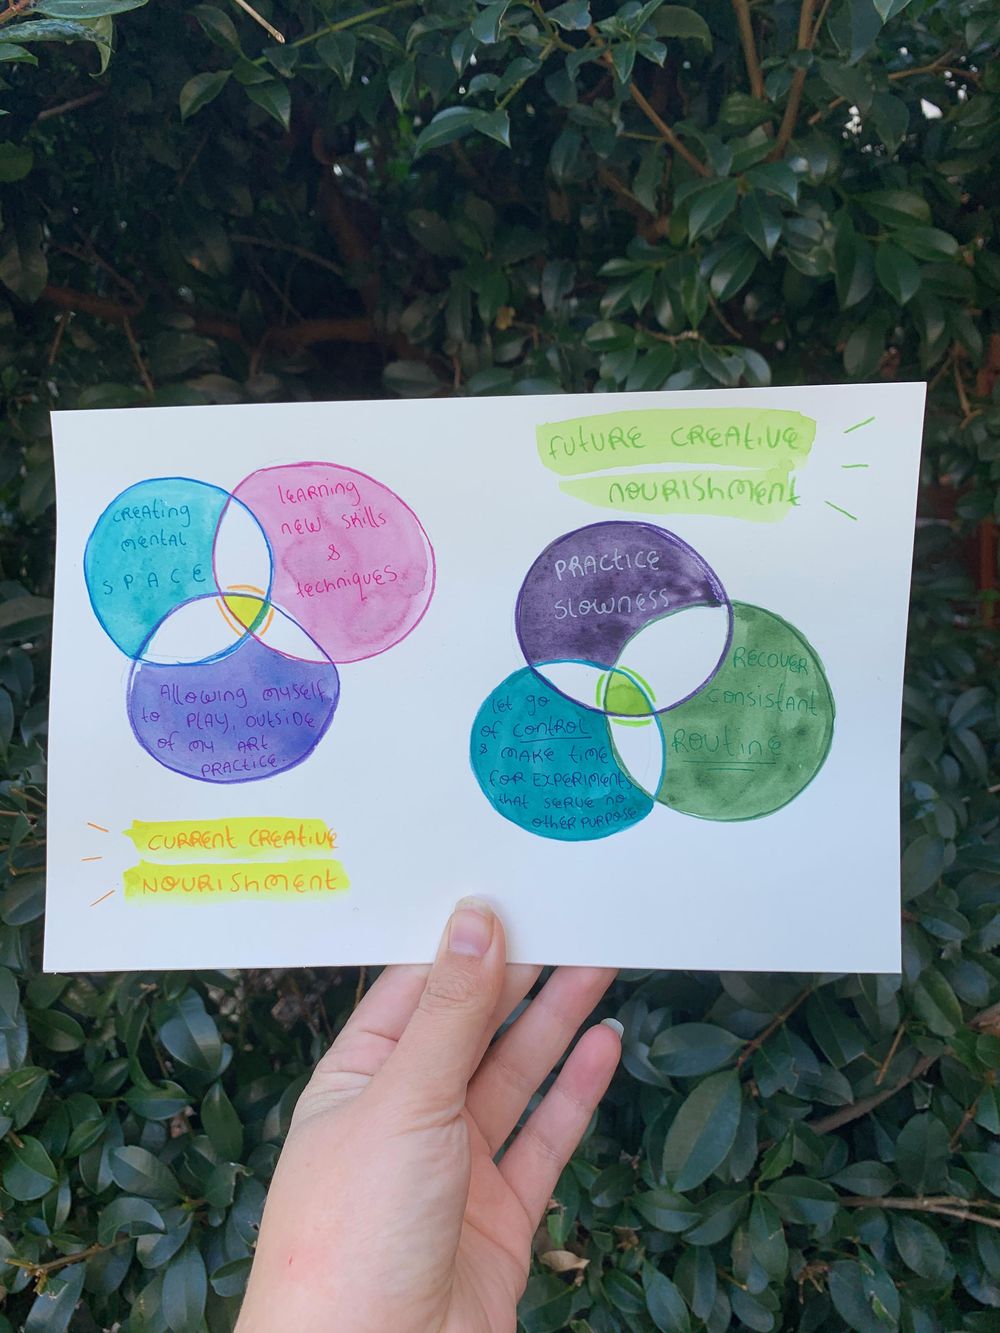 CREATING
MENTAL
SPACE
LEARNING
NEW SKILLS
&
TECHNIQUES
ALLOWING MYSELF
TO PLAY, OUTSIDE
OF MY ART
PRACTICE.
CURRENT CREATIVE
NOURISHMENT
FUTURE CREATIVE
NOURISHMENT
PRACTICE
SLOWNESS
RECOVER
CONSISTANT
ROUTINE
LET GO
OF CONTROL
& MAKE TIME
FOR EXPERIMENTS
THAT SERVE NO
OTHER PURPOSE